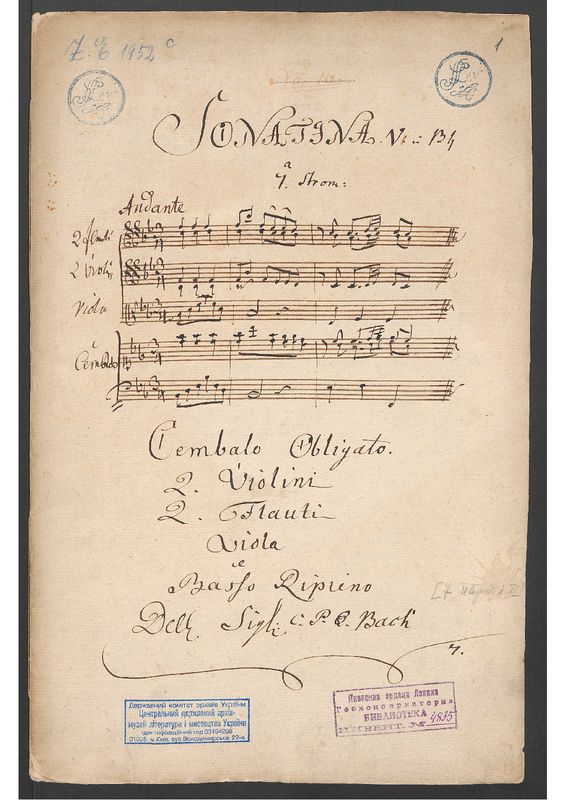 Z. E 1952 c
1
SONATINA. V. 134
a
7. Strom:
Andante
2 flauti
2 Violi
Viola
Cembalo
Cembalo Obligato.
2. Violini
2. Flauti
Viola
e
Basso Ripieno
Dell. Sigl. C. P. E. Bach
7.
Державний комітет архівів України
Центральний державний архів-
музей літератури і мистецтва України
ідентифікаційний код 03494298
01025, м.Київ, вул.Володимирська, 22-а
Киевская ордена Ленина
Госконсерватория
БИБЛИОТЕКА
ИНВЕНТ. № 4835